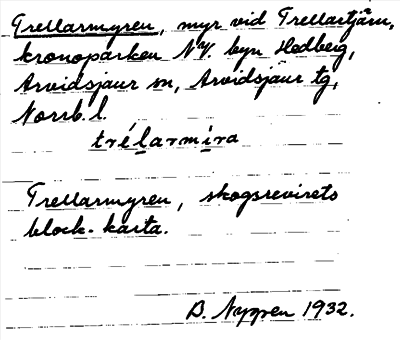 Trellarmyren, myr vid Trellartjärn,
kronoparken NV. byn Hedberg,
Arvidsjaur sn, Arvidsjaur tg,
Norrb. l.
trélarmira
Trellarmyren, skogsrevirets
block-karta.
B. Nygren 1932.